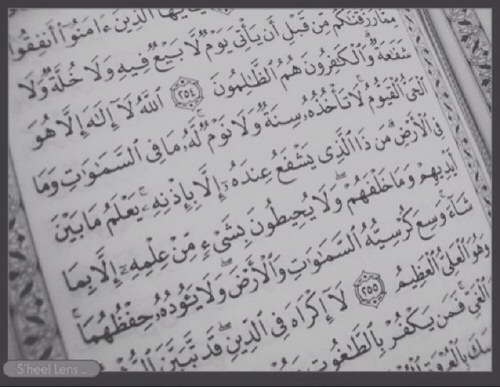 يَٰٓأَيُّهَا ٱلَّذِينَ ءَامَنُوٓا۟ أَنفِقُوا۟
مِمَّا رَزَقْنَٰكُم مِّن قَبْلِ أَن يَأْتِىَ يَوْمٌ لَّا بَيْعٌ فِيهِ وَلَا خُلَّةٌ وَلَا
شَفَٰعَةٌ ۗ وَٱلْكَٰفِرُونَ هُمُ ٱلظَّٰلِمُونَ ٢٥٤ ٱللَّهُ لَآ إِلَٰهَ إِلَّا هُوَ
ٱلْحَىُّ ٱلْقَيُّومُ ۚ لَا تَأْخُذُهُۥ سِنَةٌ وَلَا نَوْمٌ ۚ لَّهُۥ مَا فِى ٱلسَّمَٰوَٰتِ وَمَا
فِى ٱلْأَرْضِ ۗ مَن ذَا ٱلَّذِى يَشْفَعُ عِندَهُۥٓ إِلَّا بِإِذْنِهِۦ ۚ يَعْلَمُ مَا بَيْنَ
أَيْدِيهِمْ وَمَا خَلْفَهُمْ ۖ وَلَا يُحِيطُونَ بِشَىْءٍ مِّنْ عِلْمِهِۦٓ إِلَّا بِمَا
شَآءَ ۚ وَسِعَ كُرْسِيُّهُ ٱلسَّمَٰوَٰتِ وَٱلْأَرْضَ ۖ وَلَا يَـُٔودُهُۥ حِفْظُهُمَا ۚ
وَهُوَ ٱلْعَلِىُّ ٱلْعَظِيمُ ٢٥٥ لَآ إِكْرَاهَ فِى ٱلدِّينِ ۖ قَد تَّبَيَّنَ
ٱلْغَىِّ ۚ فَمَن يَكْفُرْ بِٱلطَّٰغُوتِ
بِٱلْعُرْوَةِ
S'heel Lens ..